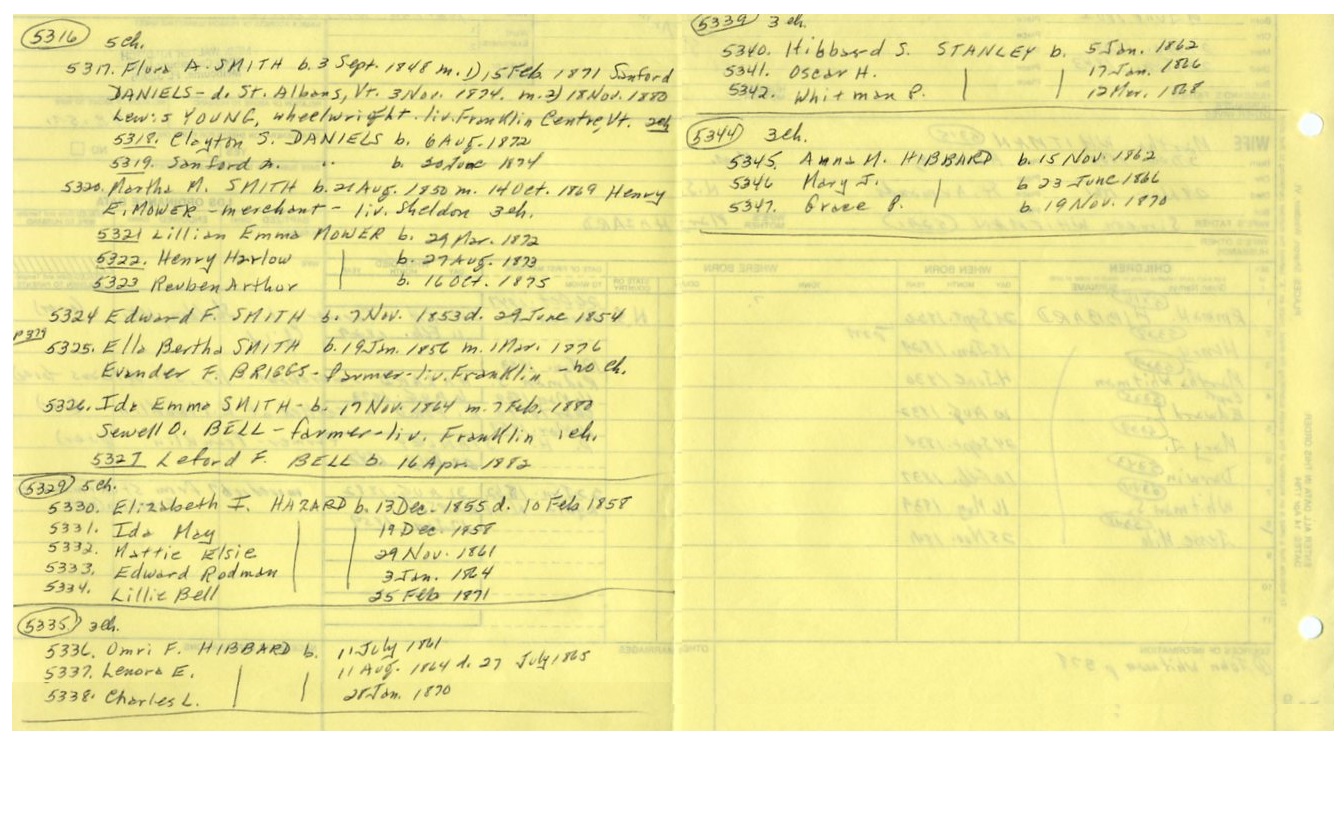 5316 5 ch.
5317. Flora A. SMITH b. 3 Sept. 1848 m. 1) 15 Feb. 1871 Sanford
DANIELS - d. St. Albans, Vt. 3 Nov. 1874. m. 2) 18 Nov. 1880
Lewis YOUNG, wheelwright - liv. Franklin Centre, Vt. 2ch
5318. Clayton S. DANIELS b. 6 Aug. 1872
5319. Sanford A. " b. 20 June 1874
5320. Martha M. SMITH b. 21 Aug. 1850 m. 14 Oct. 1869 Henry
E. MOWER - merchant - liv. Sheldon 3 ch.
5321 Lillian Emma MOWER b. 29 Mar. 1872
5322. Henry Harlow b. 27 Aug. 1873
5323 Reuben Arthur b. 16 Oct. 1875
5324 Edward F. SMITH b. 7 Nov. 1853 d. 29 June 1854
P379
5325. Ella Bertha SMITH b. 19 Jan. 1856 m. 1 Mar. 1876
Evander F. BRIGGS - farmer - liv. Franklin - no ch.
5326. Ida Emma SMITH - b. 17 Nov. 1864 m. 7 Feb. 1880
Sewell O. BELL - farmer - liv. Franklin 1 ch.
5327 Leford F. BELL b. 16 Apr 1882
5329 5 ch.
5330. Elizabeth I. HAZARD b. 13 Dec. 1855 d. 10 Feb 1858
5331. Ida May 19 Dec. 1858
5332. Mattie Elsie 29 Nov. 1861
5333. Edward Rodman 3 Jan. 1864
5334. Lillie Bell 25 Feb 1871
5335 3 ch.
5336. Omri F. HIBBARD b. 11 July 1861
5337. Lenora E. 11 Aug. 1864 d. 27 July 1865
5338. Charles L. 28 Jan. 1870
5339 3 ch.
5340. Hibbard S. STANLEY b. 5 Jan. 1862
5341. Oscar H. 17 Jan. 1866
5342. Whitman P. 12 Mar. 1868
5344 3 ch.
5345. Anna M. HIBBARD b. 15 Nov. 1862
5346 Mary J. b 23 June 1866
5347. Grace P. b. 19 Nov. 1870